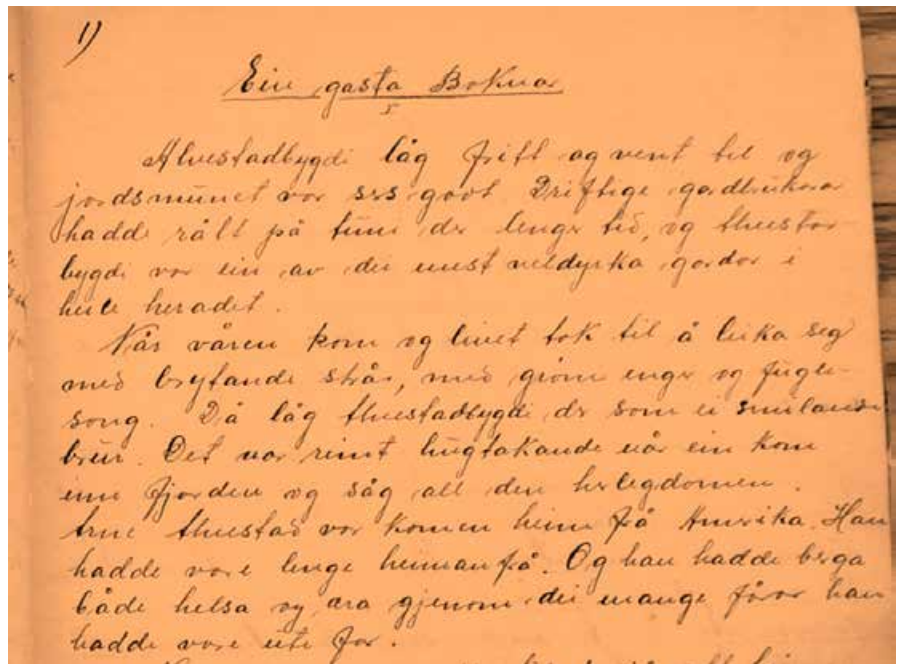 1)
Ein gasta Boknar
Alvestadbygdi låg fritt og vent til og
jordsmunet var srs godt. Driftige gardbrukarar
hadde rått på tuni der lenger tid, og Alvestad
bygdi var ein av dei mest veldyrka gardar i
heile heradet.
Når våren kom og livet tok til å leika seg
med brytande strår, med grøne enger og fugle-
song. Då låg Alvestadbygdi der som ei smilande
brur. Det var reint hugtakande når ein kom
inn fjorden og såg all den herlegdomen.
Arne Alvestad var komen heim frå Amerika. Han
hadde vore lenge heimanfrå. Og han hadde berga
både helsa og æra gjenom dei mange fårar han
hadde vore ute for.